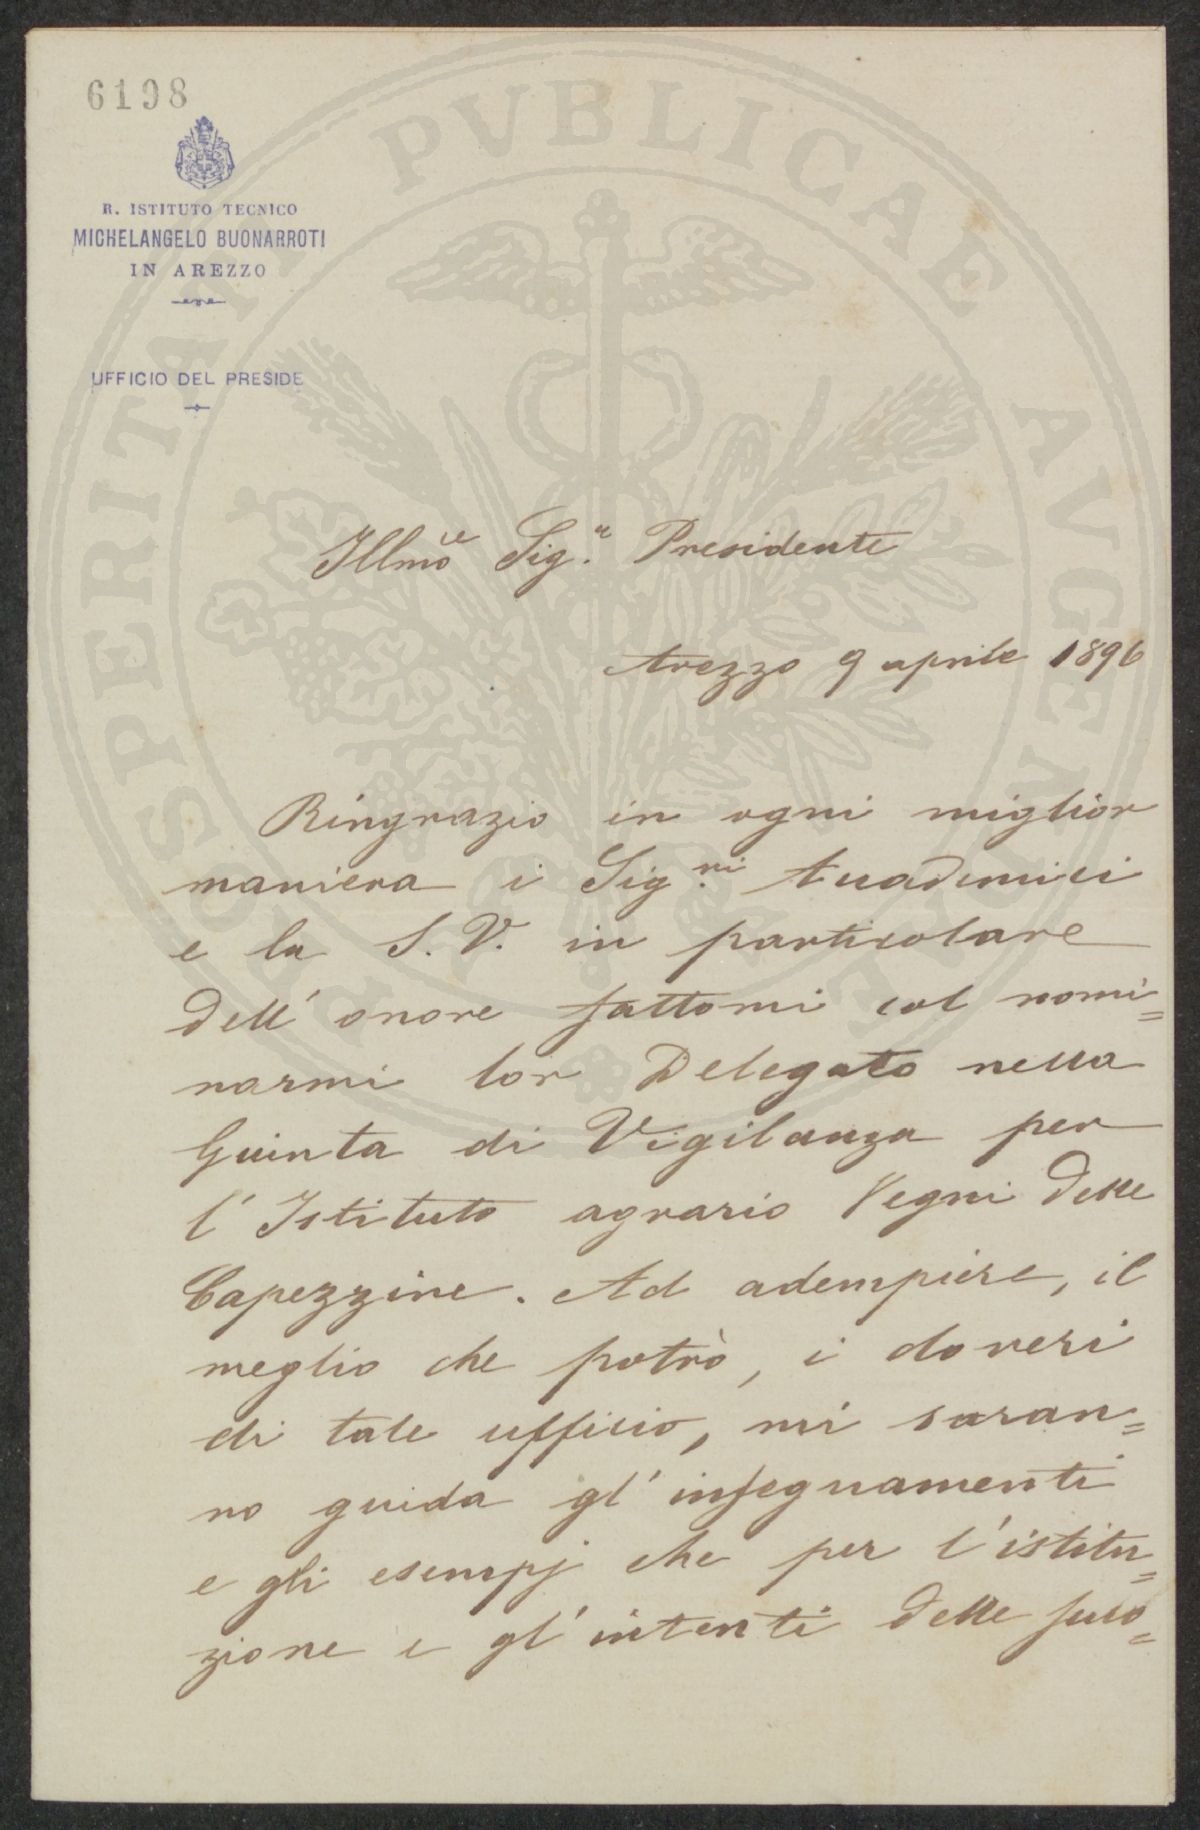 6198
R. ISTITUTO TECNICO
MICHELANGELO BUONARROTI
IN AREZZO
UFFICIO DEL PRESIDE
PROSPERITATI PVBLICAE AVGENDAE
Illmo Sig.r Presidente
Arezzo 9 aprile 1896
Ringrazio in ogni miglior
maniera i Sig.ri Accademici
e la S. V. in particolare
dell' onore fattomi col nomi=
narmi lor Delegato nella
Guinta di Vigilanza per
l' Istituto agrario Vegni delle
Capezzine. Ad adempiere, il
meglio che potrò, i doveri
di tale ufficio, mi saran=
no guida gl' insegnamenti
e gli esempj che per l' istitu=
zione e gl' intenti delle scuo=